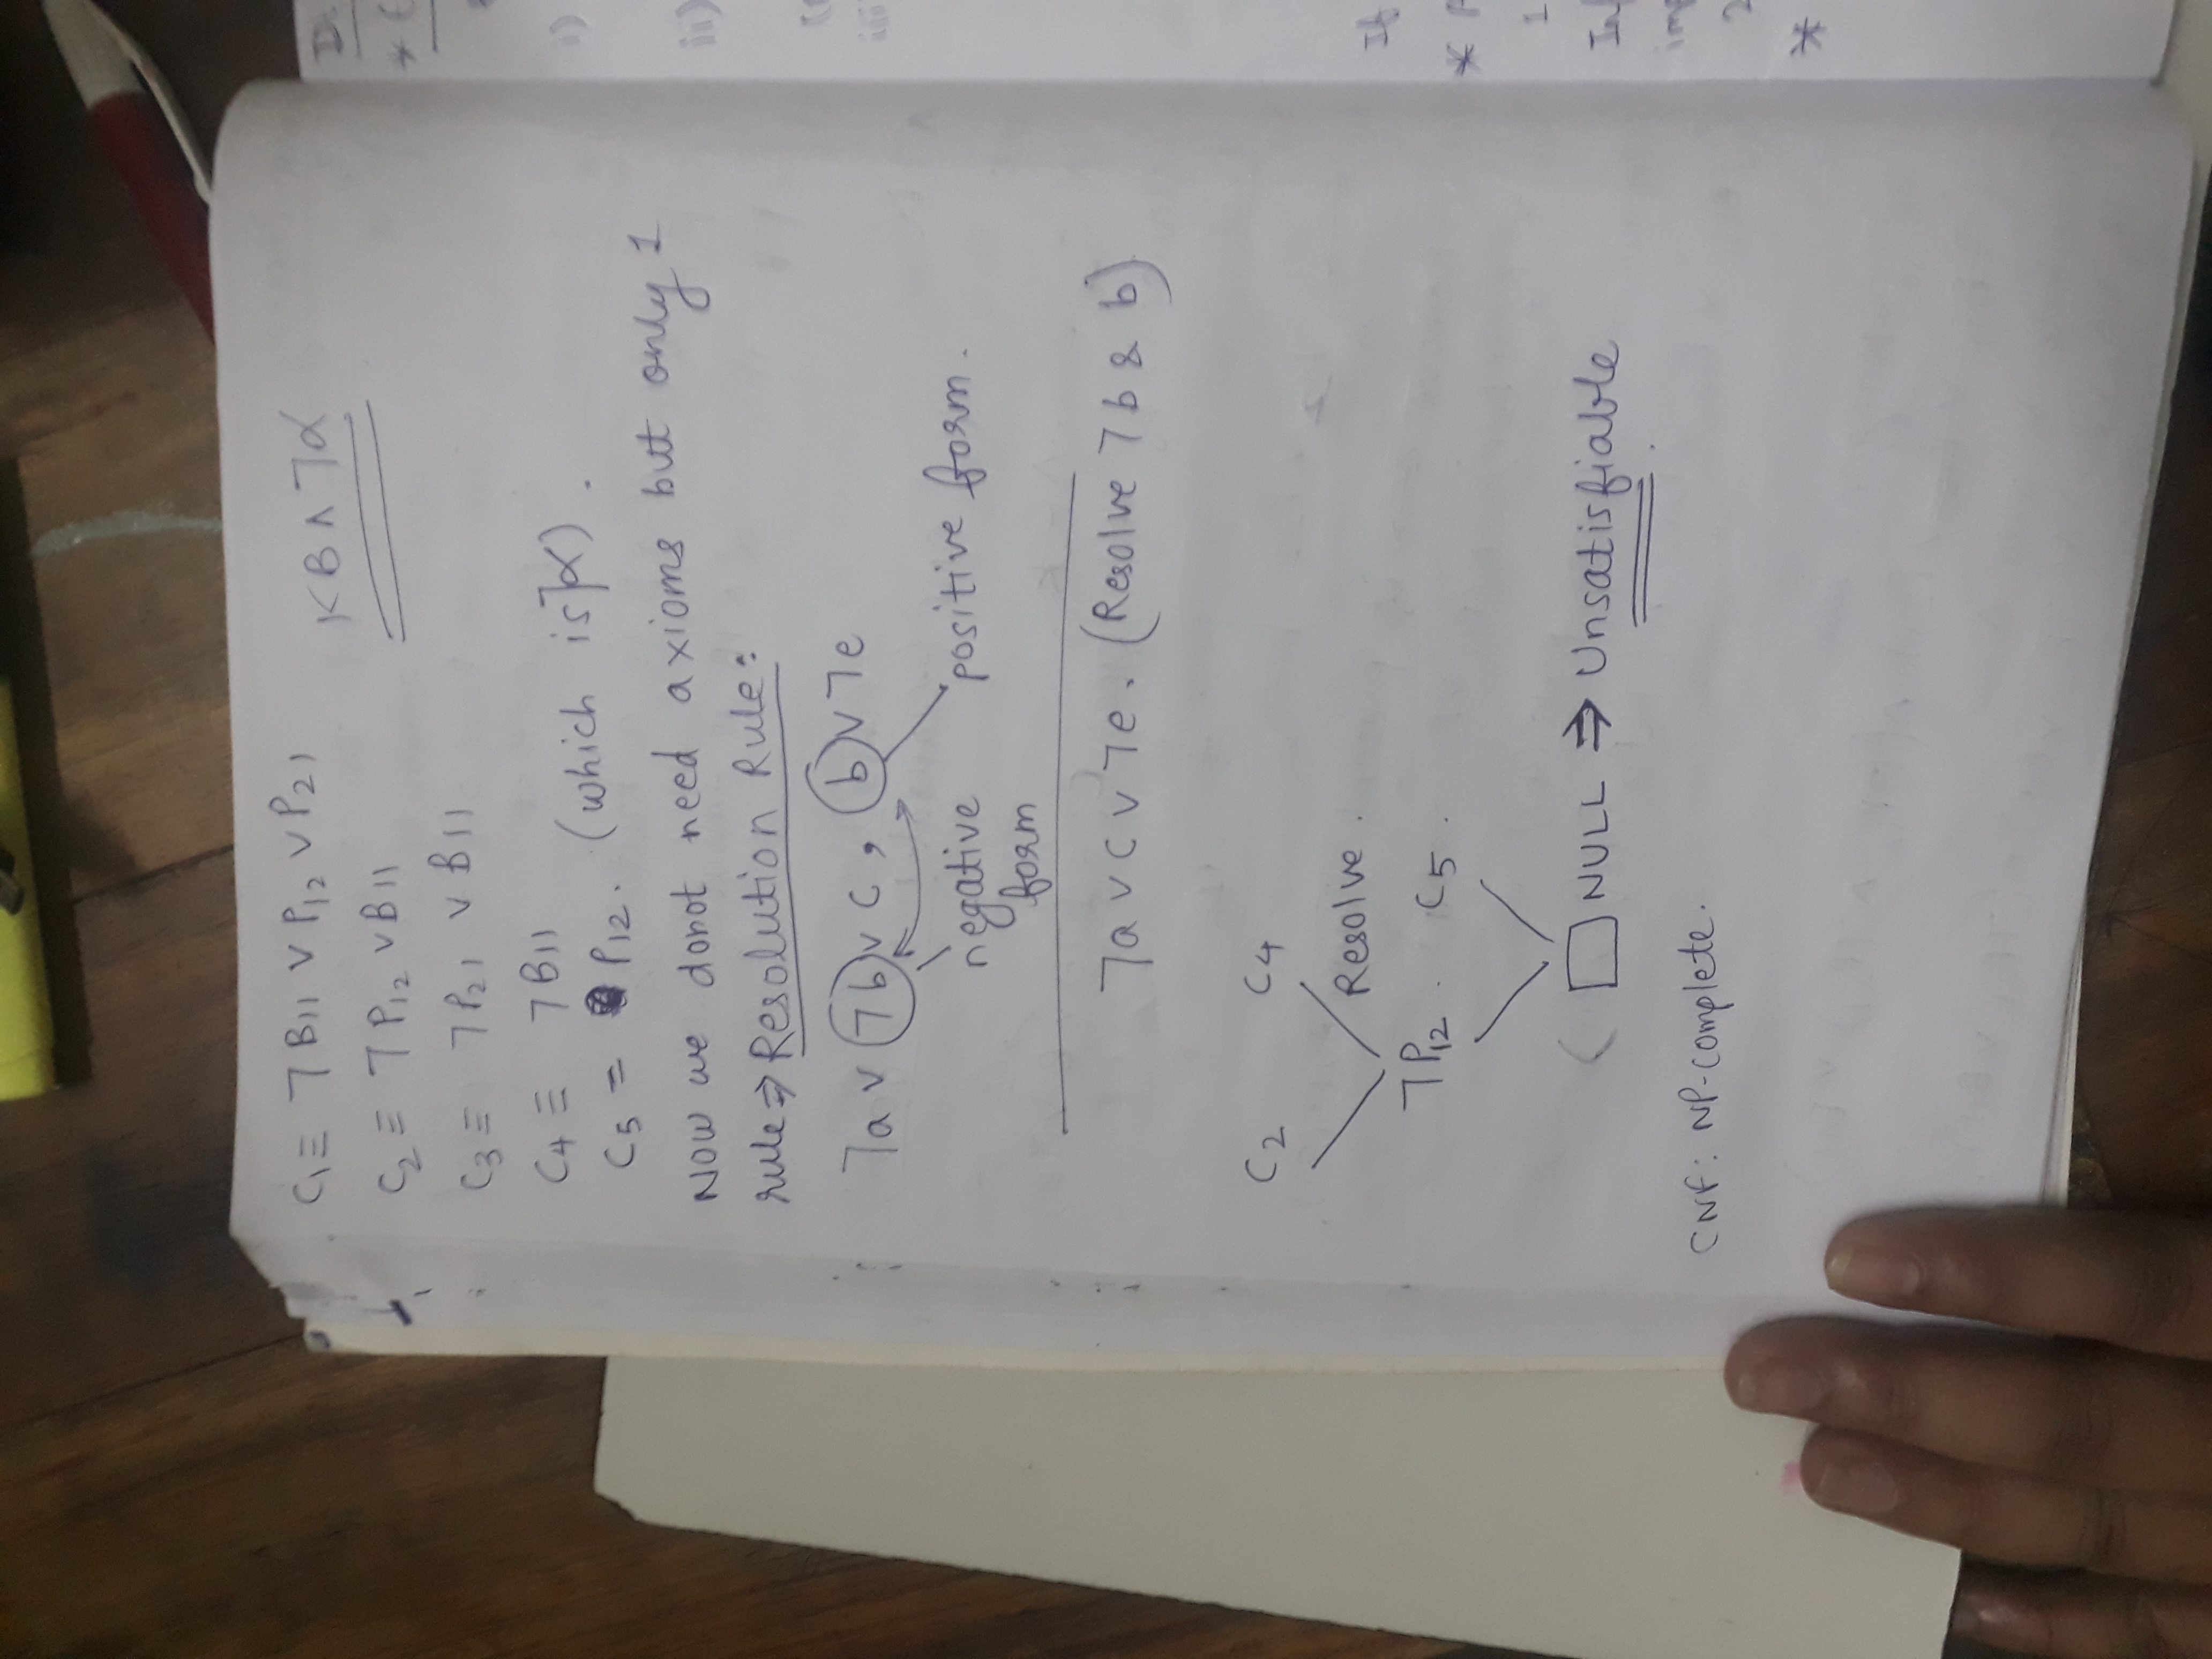 C1 ≡ ¬B11 ∨ P12 ∨ P21
KB ∧ ¬α
C2 ≡ ¬P12 ∨ B11
C3 ≡ ¬P21 ∨ B11
C4 ≡ ¬B11
C5 = P12. (which is ¬α).
Now we donot need axioms but only 1
rule ⇒ Resolution Rule:
¬a ∨ ¬b ∨ c , b ∨ ¬e
negative
form
positive form.
¬a ∨ c ∨ ¬e. (Resolve ¬b & b)
C2 C4
Resolve.
¬P12. C5.
( □ NULL ⇒ Unsatisfiable
CNF: NP-complete.
D
* (
i)
ii)
(
iii
If
* A
1
In
im
2
*